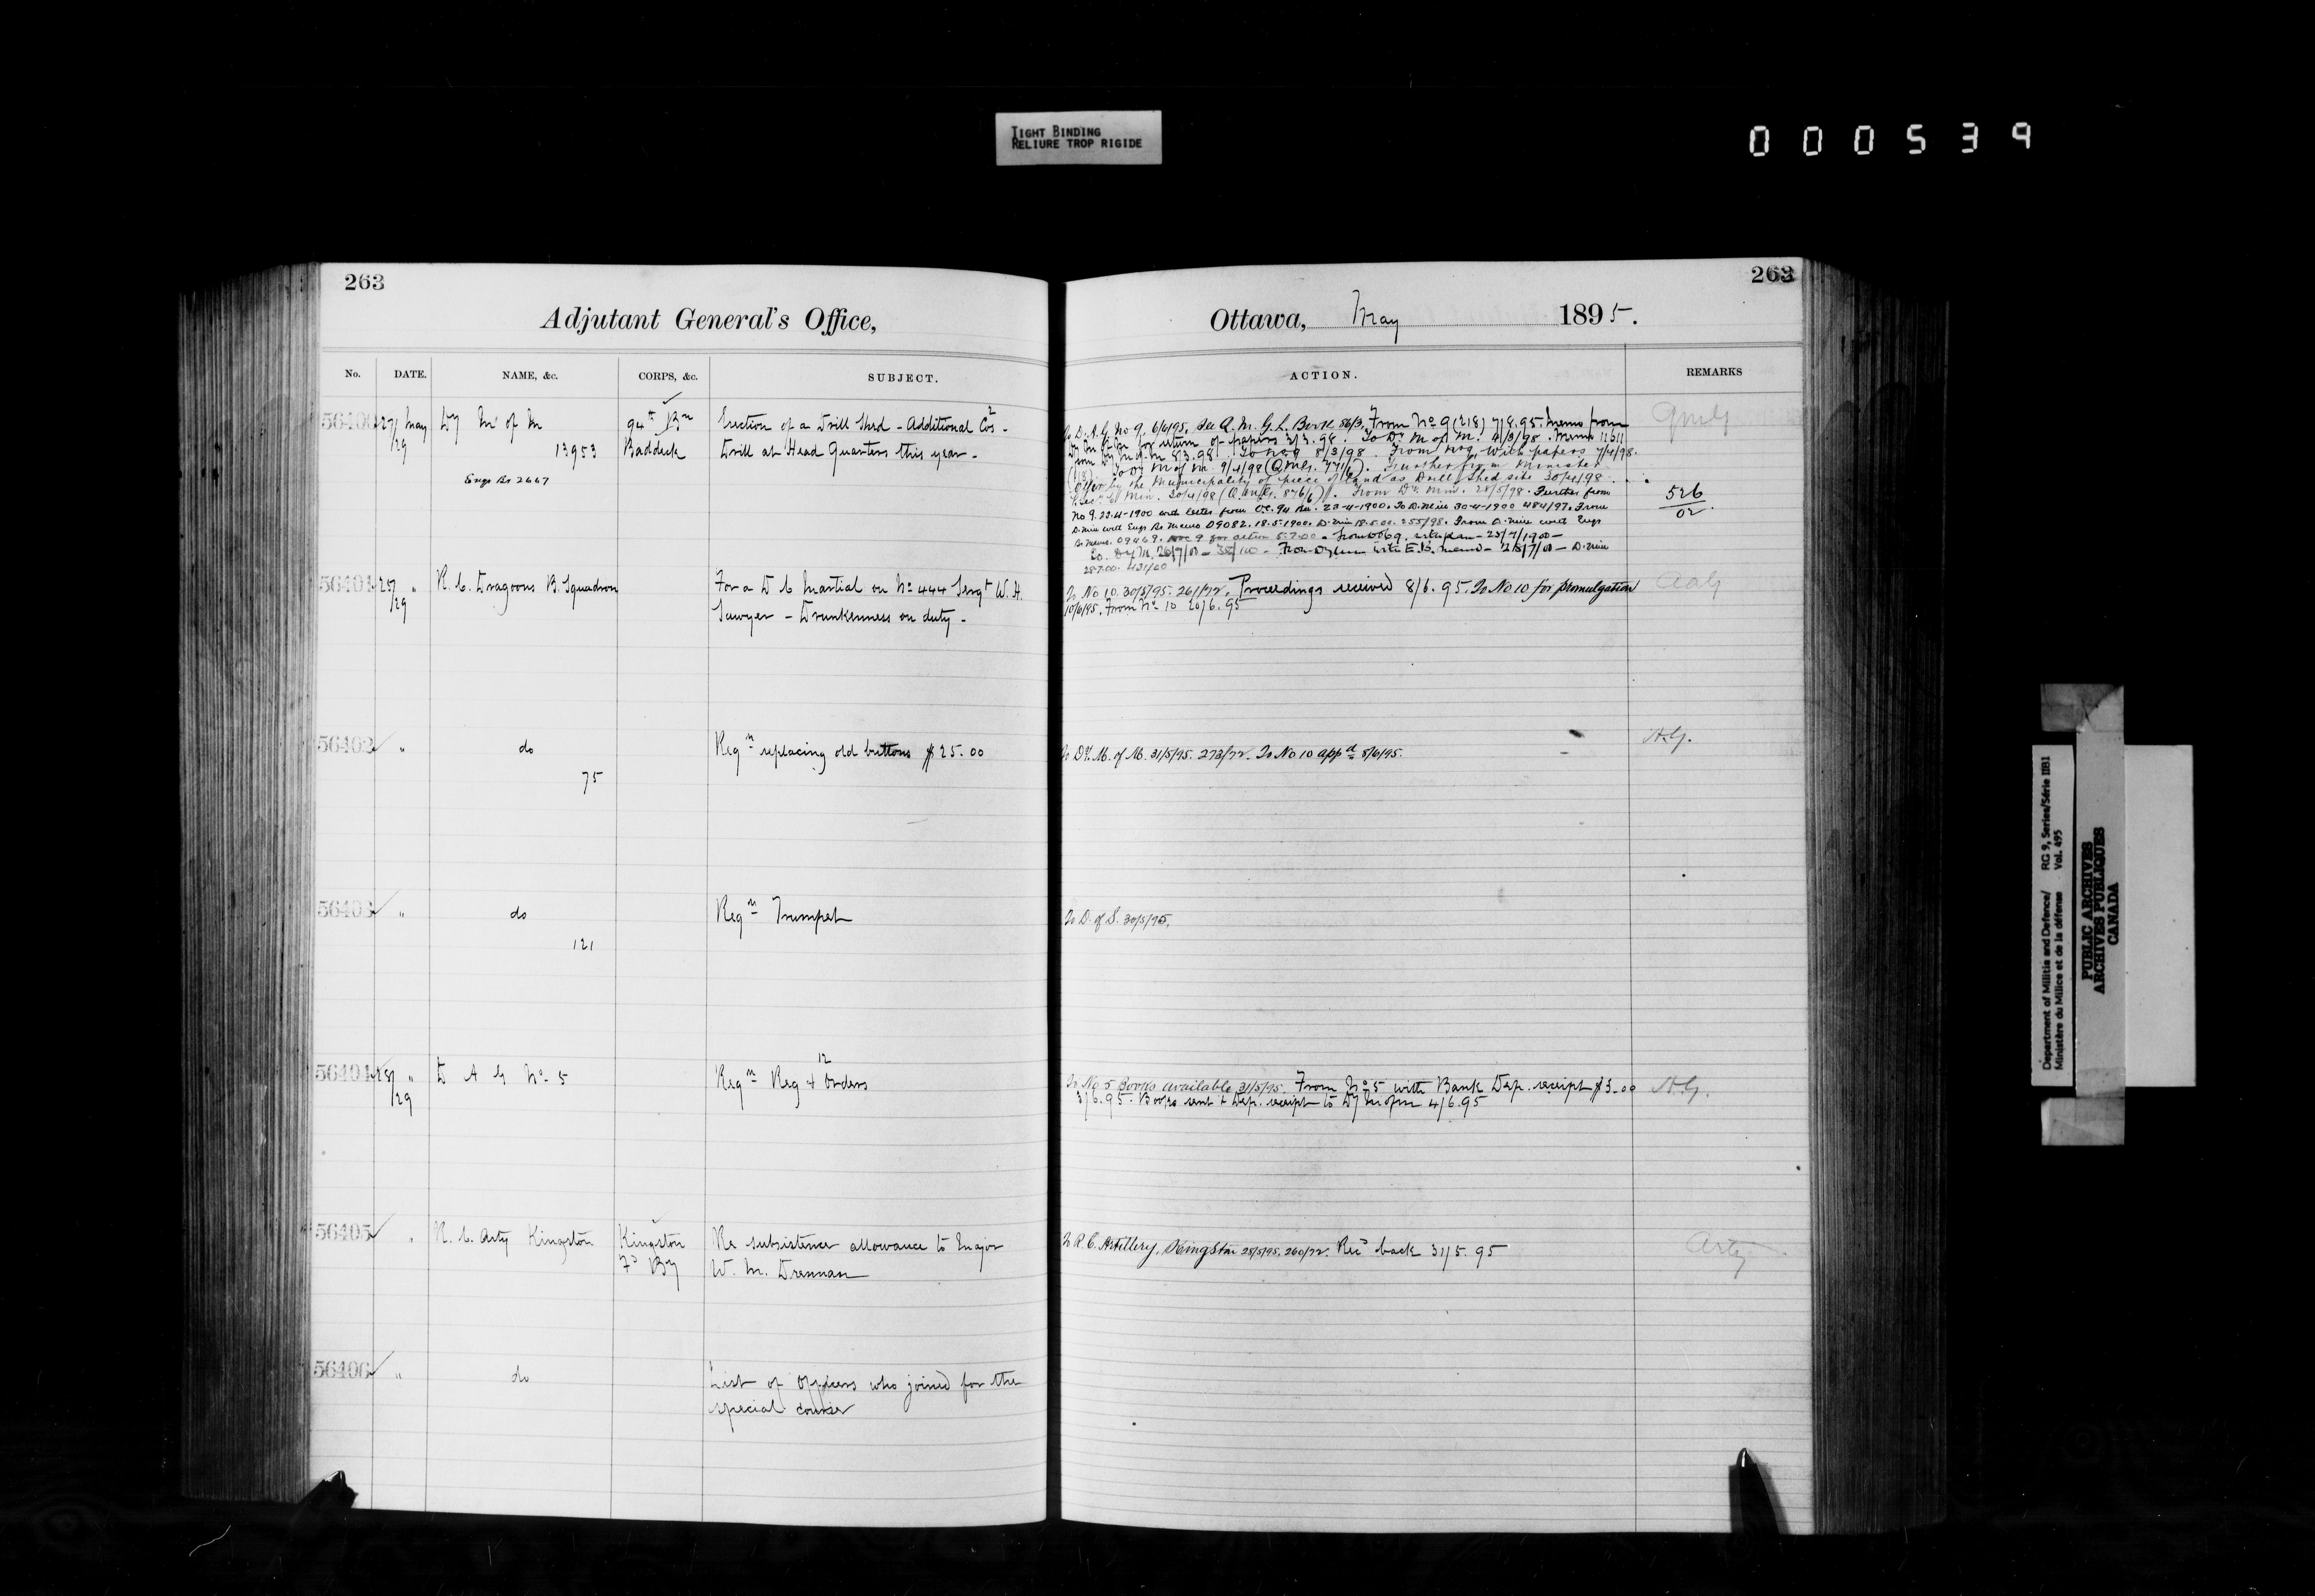 TIGHT BINDING
RELIURE TROP RIGIDE
000539
263
Adjutant General's Office,
No. DATE. NAME, &c. CORPS, &c. SUBJECT.
56400 27/29 May Dy Mr of M 94th Bn Erection of a Drill Shed - Additional Cos 2 -
13953 Baddeck Drill at Head Quarters this year -
Engr Br 2667
56401 27/29 " R. C. Dragoons B. Squadron For a D C Martial on No 444 Sergt W. H.
Sawyer - Drunkenness on duty -
56402 " do Reqn replacing old buttons $25.00
75
56403 " do Reqn Trumpet
121
56404 28/29 " D A G No 5 Reqn 12 Reg & Orders
56405 " R. C. Arty Kingston Kingston Re subsistence allowance to Major
Fd By W. M. Drennan
56406 " do List of Officers who joined for the
special course
263
Ottawa, May 1895.
ACTION. REMARKS
To D.A.G. No 9. 6/6/95. See Q.M.G.L. Book 86/3. From No 9 (218) 7/8.95. Memo from Qmg
Dy M of M for return of papers 3/3.98. To Dy M of M. 4/3/98. Memo
from Dy M of M 8/3.98. To No 9 8/3/98. From No 9, with papers 7/4/98.
To Dy M of M. 9/4/98 (Qmg. 771/6). Further from Minister
Offer by the Municipality of piece of land as Drill Shed site 30/4/98
Min. 30/4/98 (Q.M.G. 876/6). From Dy Min. 28/5/98. Further from 526/02.
No 9. 23-4-1900 and letter from O.C. 94 Bn. 23-4-1900. To D. Min 30-4-1900 484/97. From
D. Min with Engr Br Memo 09082. 18.5.1900. D. Min 18.5.00. 255/98. From D. Min with Engr
Br. Memo. 09469. No 9 for action 5.7.00 - From with plan - 25/7/1900 -
To Dy M. 26/7/00 - From Dy M with E.B. memo - 28/7/00 - D. Min
28.7.00. 431/00
To No 10. 30/5/95. 261/72. Proceedings received 8/6.95. To No 10 for promulgation AAG
10/6/95. From No 10 20/6.95
To Dy. M. of M. 31/5/95. 273/72. To No 10 appd 8/6/95. A.G.
To D. of S. 30/5/95.
To No 5 Books available 31/5/95. From No 5 with Bank Dep. receipt $3.00 A.G.
3/6.95. Books sent & Dep. receipt to Dy M of M 4/6.95
To R. C. Artillery, Kingston 28/5/95. 260/72. Recd back 31/5.95 Arty
Department of Militia and Defence/ RG 9, Series/Série IIB1
Ministère du Milice et de la défense Vol. 495
PUBLIC ARCHIVES
ARCHIVES PUBLIQUES
CANADA